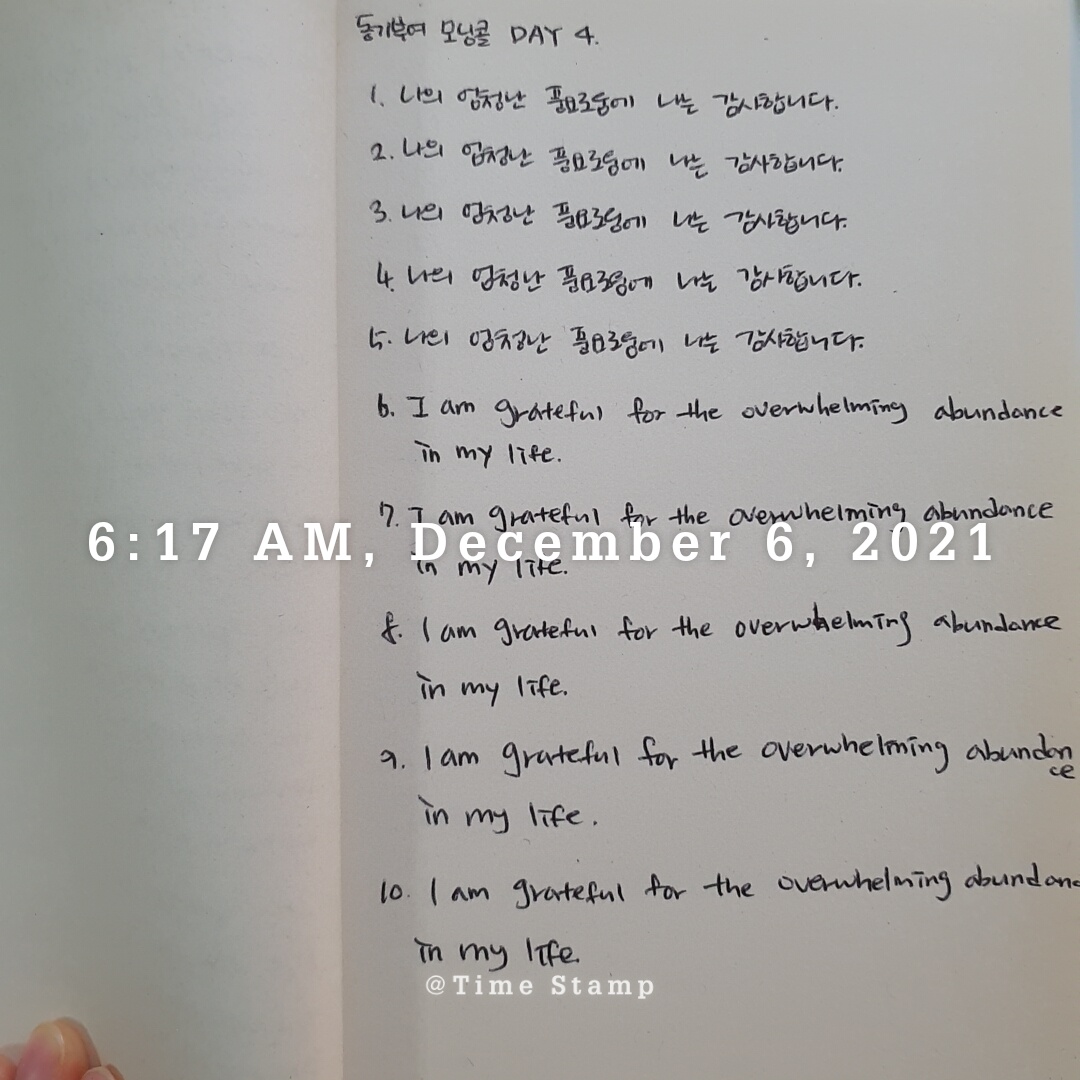 동기부여 모닝콜 DAY 4.
1. 나의 엄청난 풍요로움에 나는 감사합니다.
2. 나의 엄청난 풍요로움에 나는 감사합니다.
3. 나의 엄청난 풍요로움에 나는 감사합니다.
4. 나의 엄청난 풍요로움에 나는 감사합니다.
5. 나의 엄청난 풍요로움에 나는 감사합니다.
6. I am grateful for the overwhelming abundance
in my life.
7. I am grateful for the overwhelming abundance
6:17 AM, December 6, 2021
in my life.
8. I am grateful for the overwhelming abundance
in my life.
9. I am grateful for the overwhelming abundan
ce
in my life.
10. I am grateful for the overwhelming abundanc
in my life.
@Time Stamp